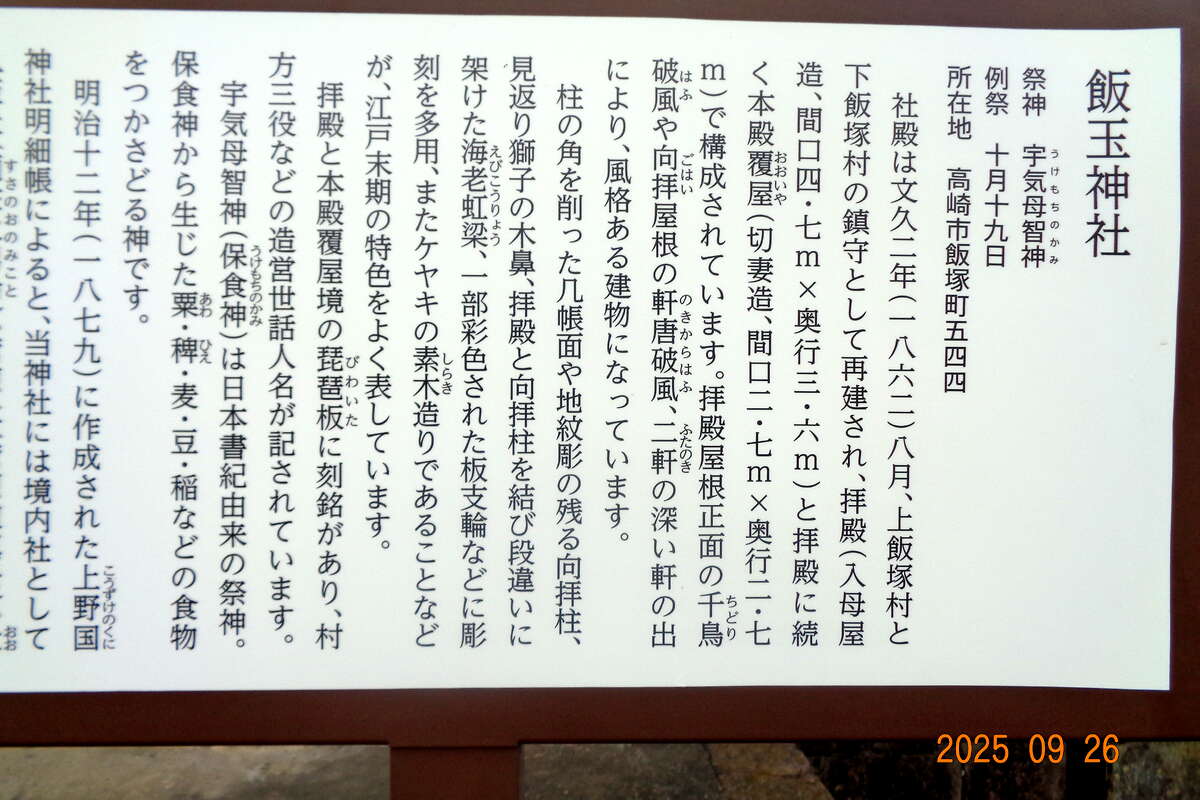 飯玉神社
祭神　宇気母智神
うけもちのかみ
例祭　十月十九日
所在地　高崎市飯塚町五四四
社殿は文久二年(一八六二)八月、上飯塚村と
下飯塚村の鎮守として再建され、拝殿(入母屋
造、間口四・七m×奥行三・六m)と拝殿に続
く本殿覆屋(切妻造、間口二・七m×奥行二・七
おおいや
m)で構成されています。拝殿屋根正面の千鳥
ちどり
破風や向拝屋根の軒唐破風、二軒の深い軒の出
はふ
ごはい
のきからはふ
ふたのき
により、風格ある建物になっています。
柱の角を削った几帳面や地紋彫の残る向拝柱、
見返り獅子の木鼻、拝殿と向拝柱を結び段違いに
架けた海老虹梁、一部彩色された板支輪などに彫
えびこうりょう
刻を多用、またケヤキの素木造りであることなど
しらき
が、江戸末期の特色をよく表しています。
拝殿と本殿覆屋境の琵琶板に刻銘があり、村
びわいた
方三役などの造営世話人名が記されています。
宇気母智神(保食神)は日本書紀由来の祭神。
うけもちのかみ
保食神から生じた粟・稗・麦・豆・稲などの食物
あわ
ひえ
をつかさどる神です。
明治十二年(一八七九)に作成された上野国
こうずけのくに
神社明細帳によると、当神社には境内社として
すさのおのみこと
おお
2025 09 26